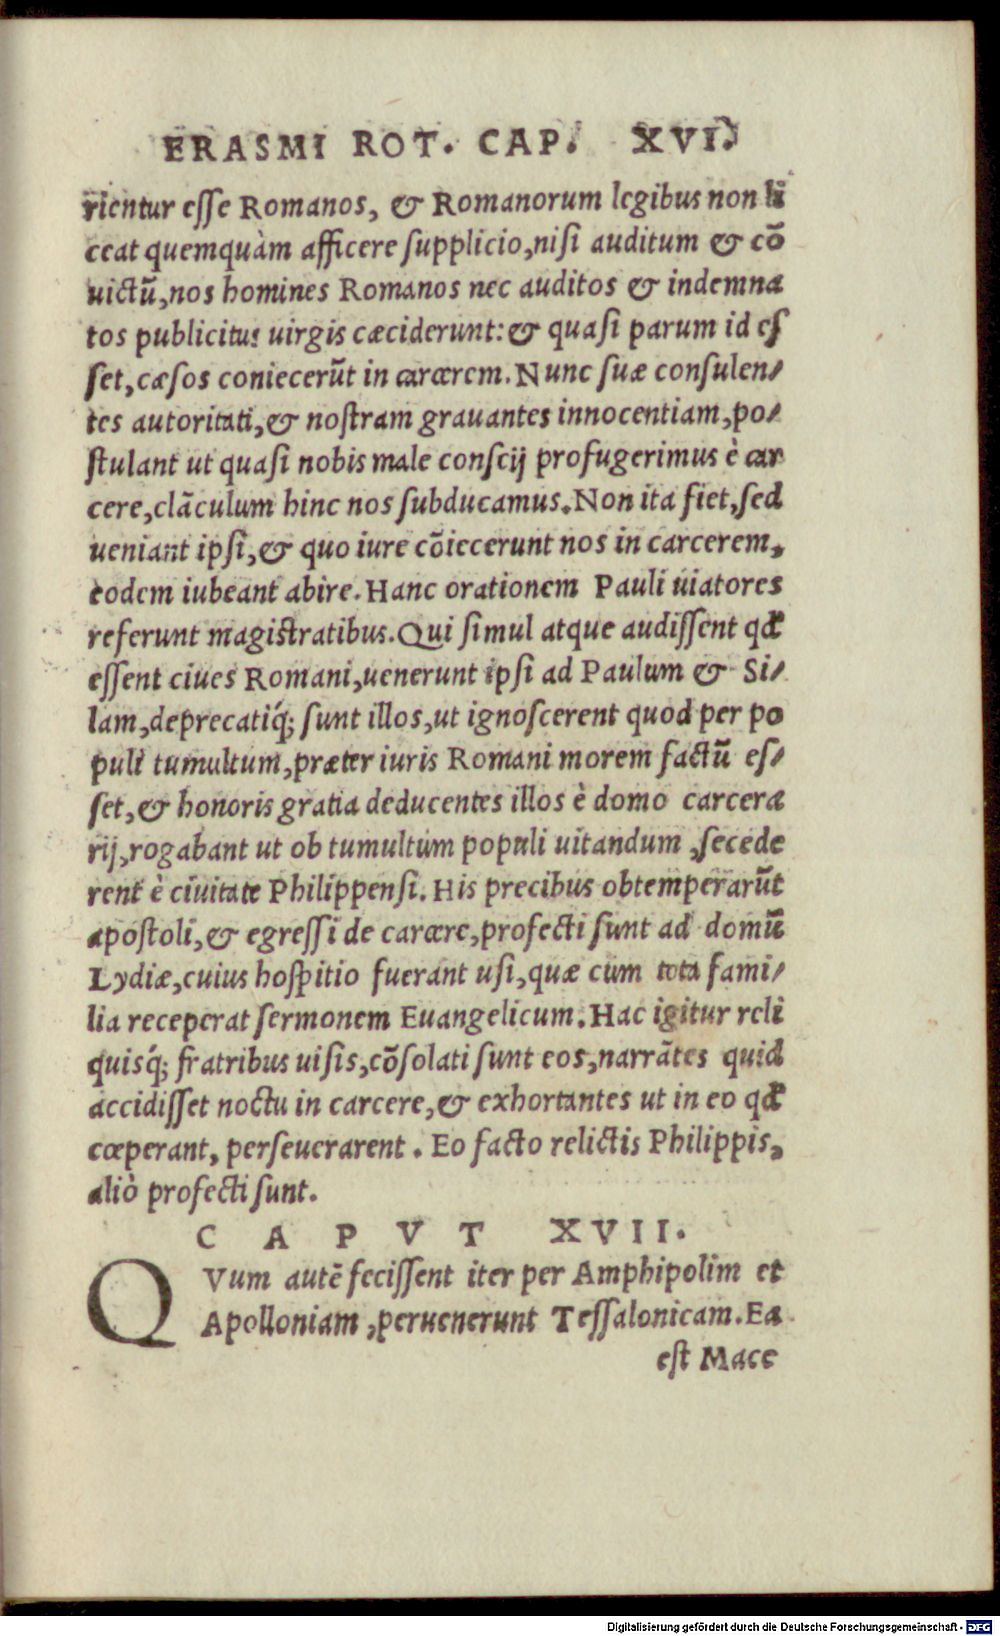 ERASMI ROT. CAP. XVI.
rientur esse Romanos, & Romanorum legibus non li
ceat quemquàm afficere supplicio, nisi auditum & cõ
uictũ, nos homines Romanos nec auditos & indemna
tos publicitus uirgis cæciderunt: & quasi parum id es
set, cæsos coniecerũt in carcerem. Nunc suæ consulen/
tes autoritati, & nostram grauantes innocentiam, po/
stulant ut quasi nobis male conscij profugerimus è car
cere, clãculum hinc nos subducamus. Non ita fiet, sed
ueniant ipsi, & quo iure cõiecerunt nos in carcerem,
eodem iubeant abire. Hanc orationem Pauli uiatores
referunt magistratibus. Qui simul atque audissent qđ
essent ciues Romani, uenerunt ipsi ad Paulum & Si/
lam, deprecatiq́; sunt illos, ut ignoscerent quod per po
puli tumultum, præter iuris Romani morem factũ es/
set, & honoris gratia deducentes illos è domo carcera
rij, rogabant ut ob tumultum populi uitandum, secede
rent è ciuitate Philippensi. His precibus obtemperarũt
apostoli, & egressi de carcere, profecti sunt ad domũ
Lydiæ, cuius hospitio fuerant usi, quæ cum tota fami/
lia receperat sermonem Euangelicum. Hac igitur reli
quisq́; fratribus uisis, cõsolati sunt eos, narrãtes quid
accidisset noctu in carcere, & exhortantes ut in eo qđ
cœperant, perseuerarent. Eo facto relictis Philippis,
aliò profecti sunt.
CAPVT XVII.
QVum autẽ fecissent iter per Amphipolim et
Apolloniam, peruenerunt Tessalonicam. Ea
est Mace
Digitalisierung gefördert durch die Deutsche Forschungsgemeinschaft - DFG